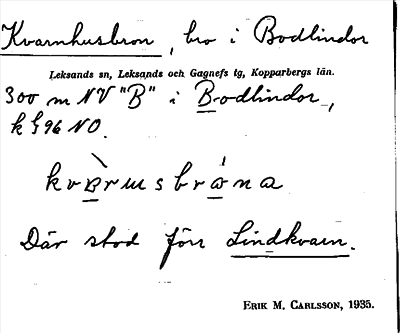 Kvarnhusbron, bro i Bodlindor
Leksands sn, Leksands och Gagnefs tg, Kopparbergs län.
300 m NV "B" i Bodlindor,
k § 96 NO.
kvàrnusbróna
Där stod förr Lindkvarn.
ERIK M. CARLSSON, 1935.